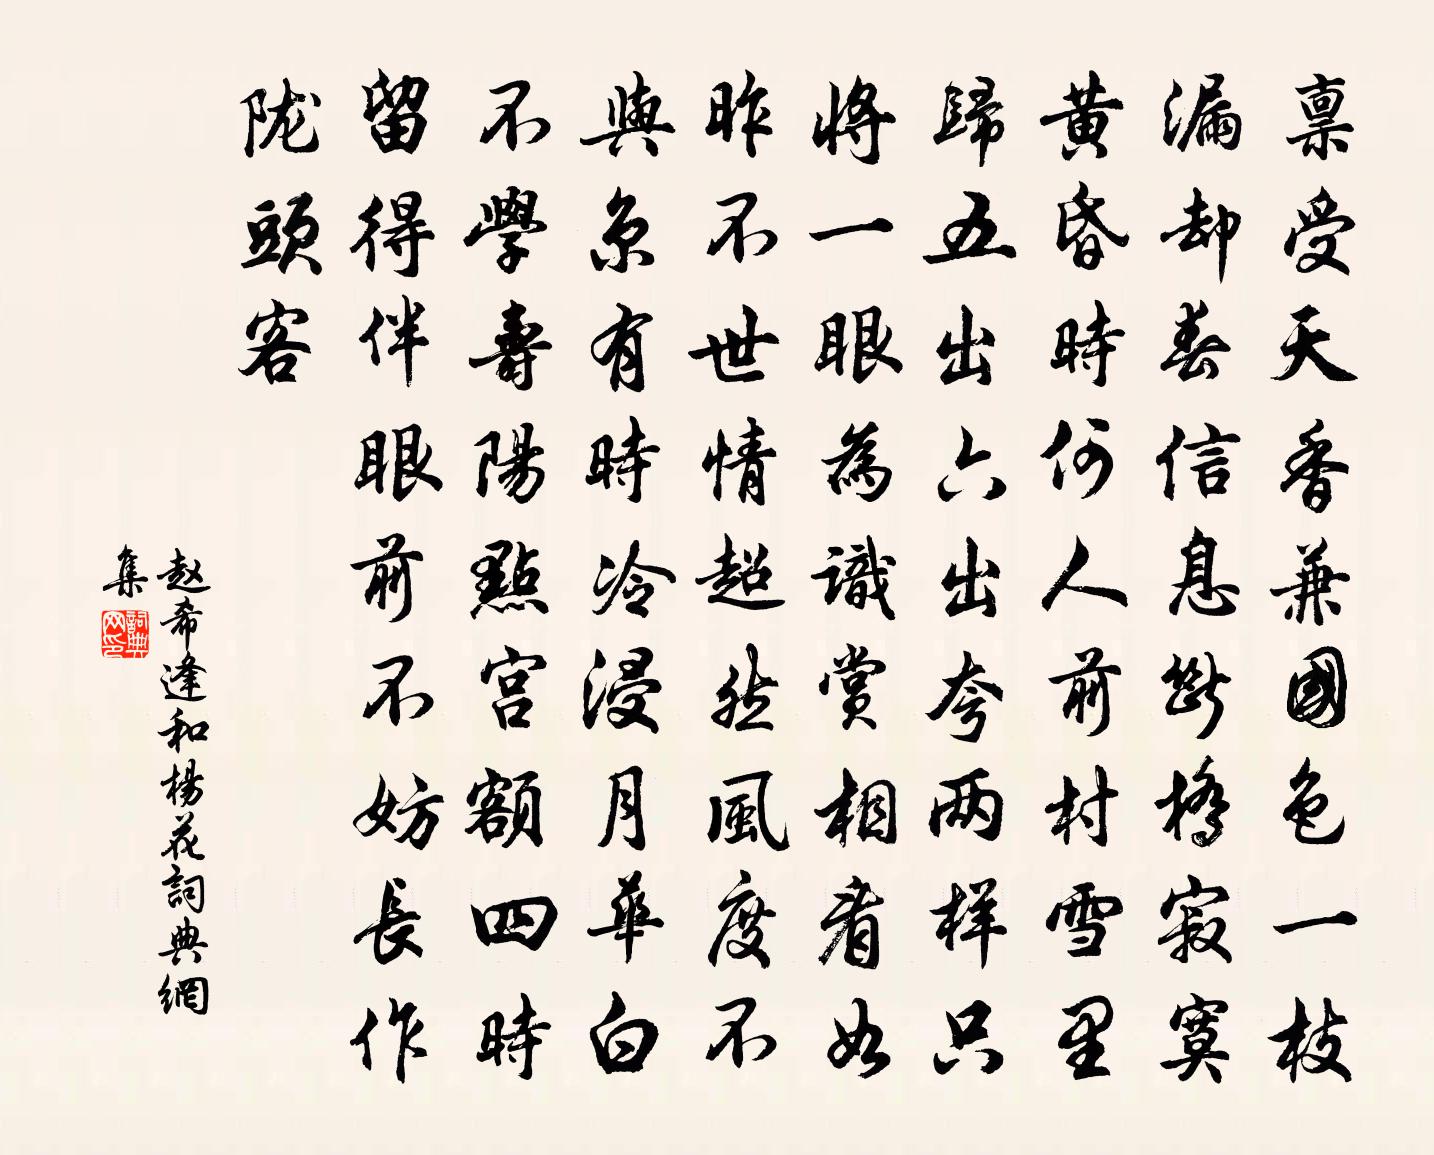 禀受天香兼國色一枝
漏却春信息斷橋寂寞
黄昏時何人前村雪里
歸五出六出夸两样只
將一眼為識賞相看如
昨不世情超然風度不
與衆有時冷浸月華白
不學壽陽點宫額四時
留得伴眼前不妨長作
陇頭客
赵希逢和楊花詞典網
集
詞典
网印